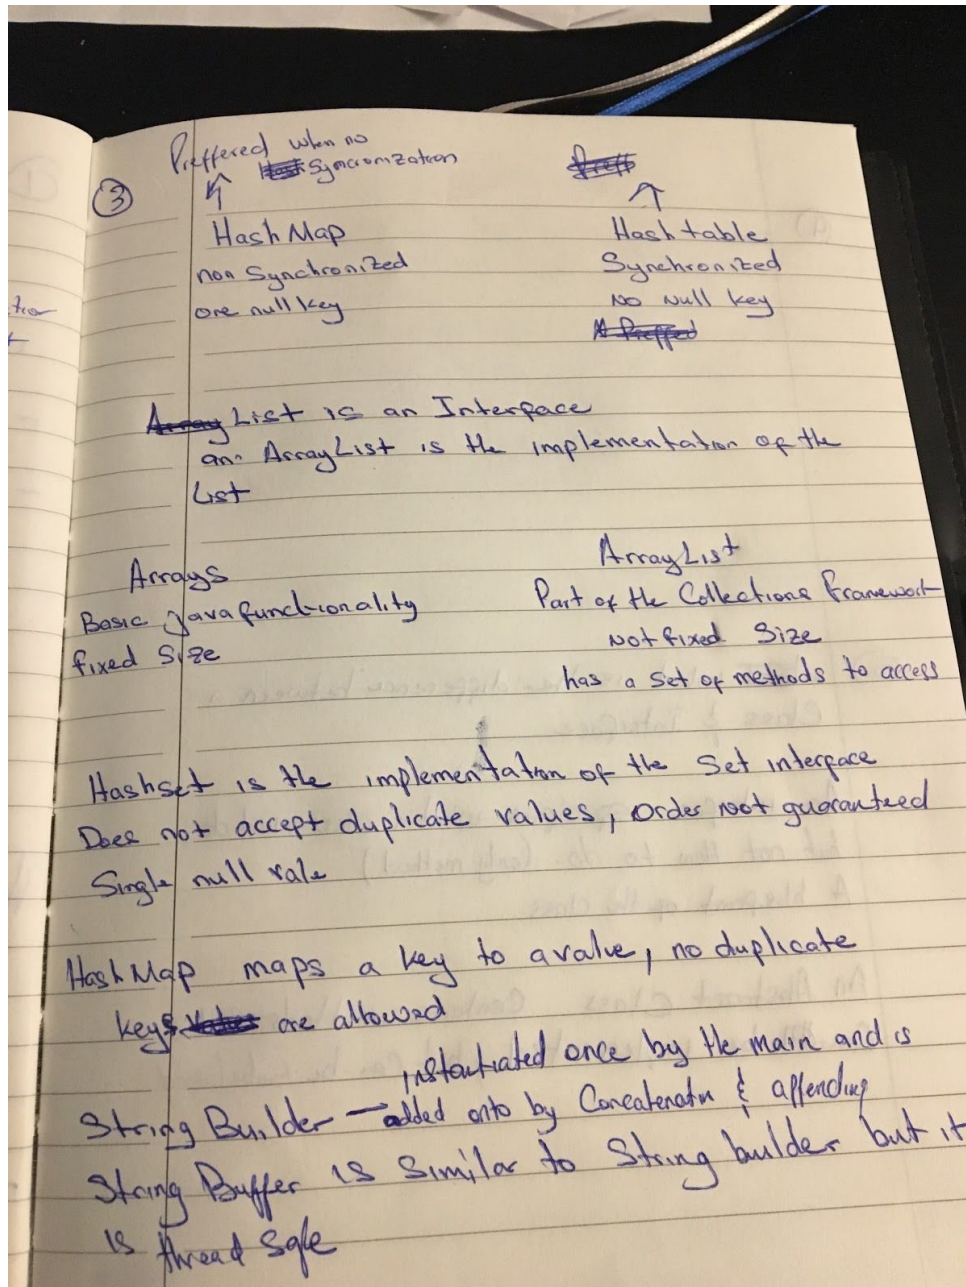 Preffered when no
Syncronization
③
HashMap
Hashtable
non Synchronized
Synchronized
one null key
No null key
List is an Interface
an ArrayList is the implementation of the
List
Arrays
ArrayList
Basic Java functionality
Part of the Collections Framework
fixed size
Not fixed Size
has a set of methods to access
Hashset is the implementation of the Set interface
Does not accept duplicate values, order not guaranteed
Single null vale
HashMap maps a key to a value, no duplicate
keys are allowed
instantiated once by the main and is
String Builder → added onto by Concatenatin & appending
String Buffer is similar to String builder but it
is thread safe